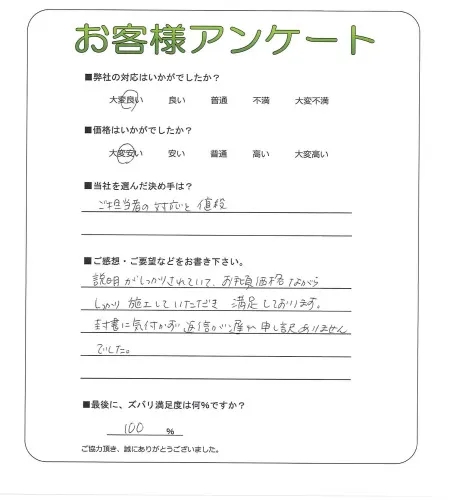 お客様アンケート
■弊社の対応はいかがでしたか？
大変良い 良い 普通 不満 大変不満
■価格はいかがでしたか？
大変安い 安い 普通 高い 大変高い
■当社を選んだ決め手は？
ご担当者の対応と値段
■ご感想・ご要望などをお書き下さい。
説明がしっかりされていて、お手頃価格ながら
しっかり施工していただき 満足しております。
封書に気付かず返信が遅れ申し訳ありません
でした。
■最後に、ズバリ満足度は何%ですか？
100 %
ご協力頂き、誠にありがとうございました。